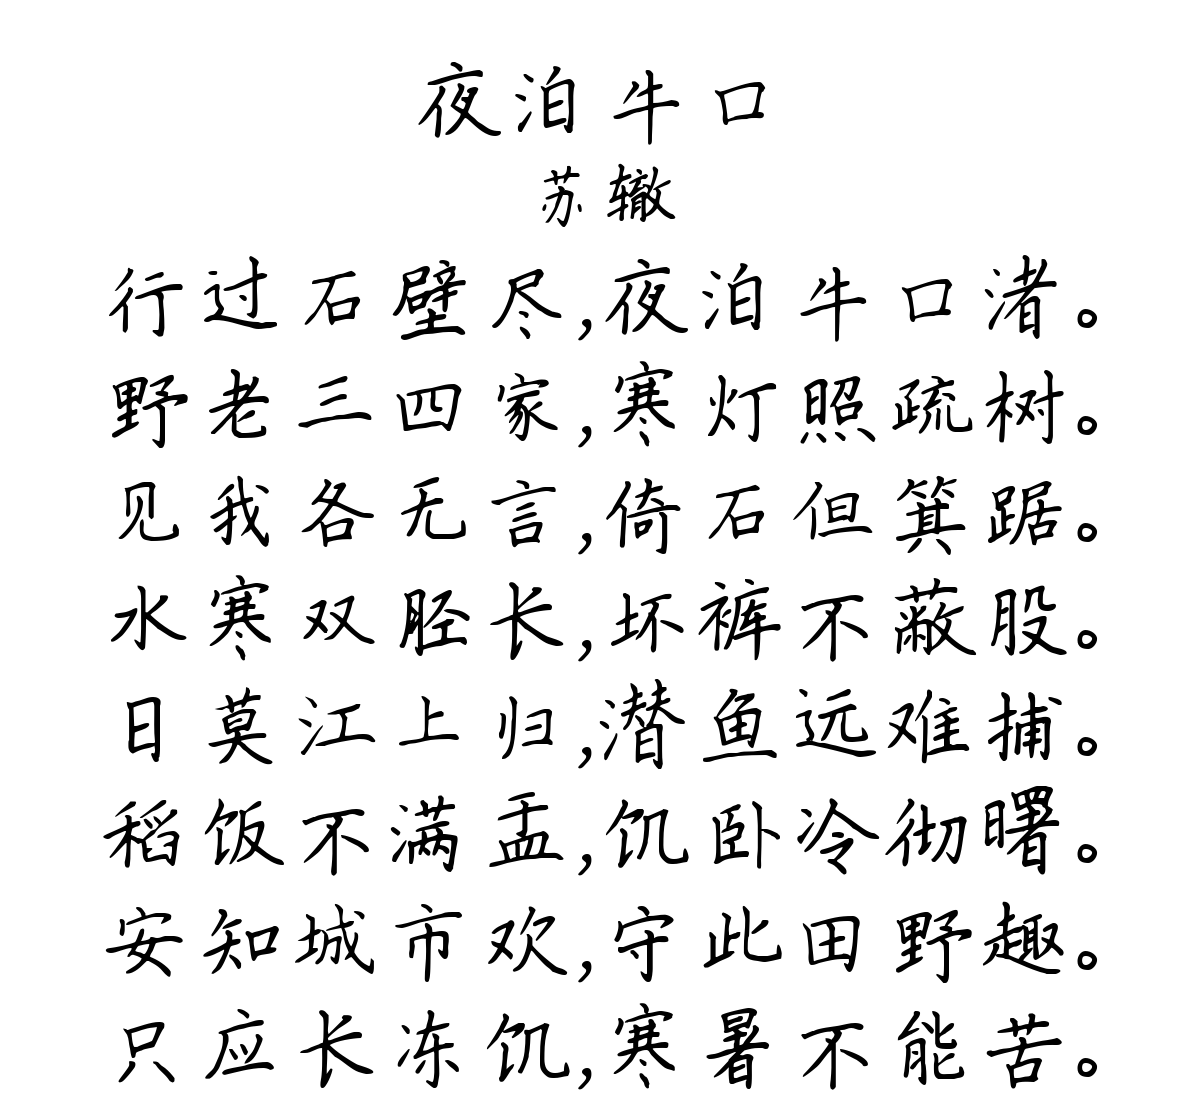 夜泊牛口
苏辙
行过石壁尽,夜泊牛口渚。
野老三四家,寒灯照疏树。
见我各无言,倚石但箕踞。
水寒双胫长,坏裤不蔽股。
日莫江上归,潜鱼远难捕。
稻饭不满盂,饥卧冷彻曙。
安知城市欢,守此田野趣。
只应长冻饥,寒暑不能苦。